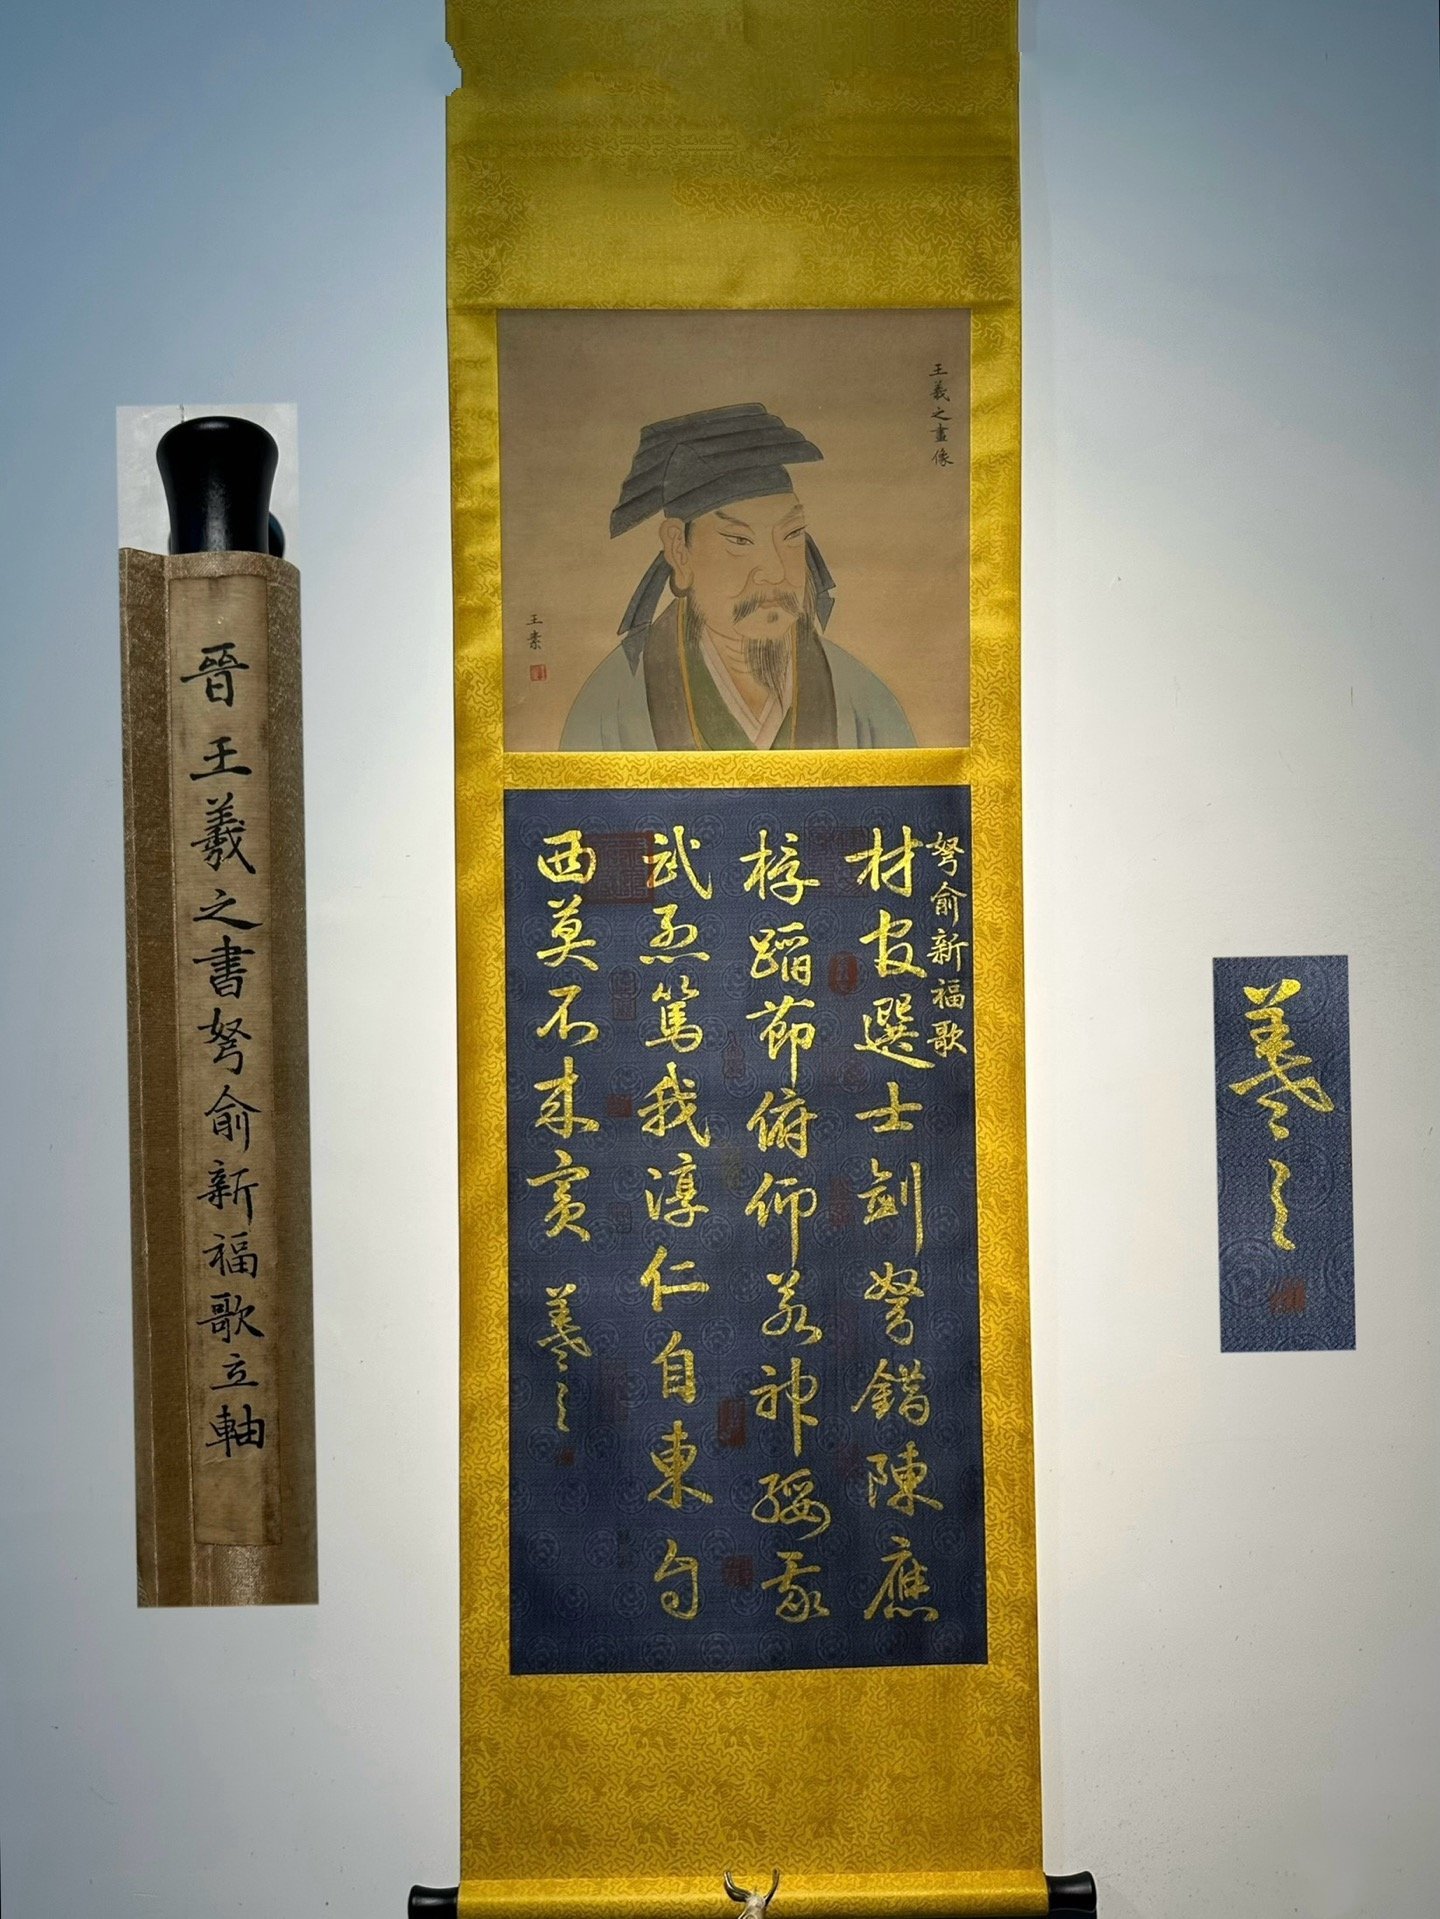 晉王羲之書弩俞新福歌立軸
王羲之畫像
王素
弩俞新福歌
材官選士劍弩錯陳應
桴蹈節俯仰若神綏我
武烈篤我淳仁自東自
西莫不來賓 羲之
羲之